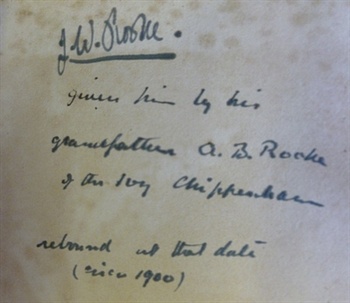 J. W. Rooke.
given him by his
grandfather A. B. Rooke
of the Ivy Chippenham
rebound at that date
(circa 1900)